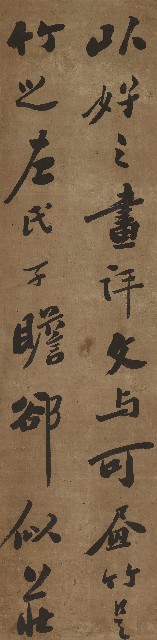 以好之畫評文与可畫竹是
竹之左氏子瞻卻似莊